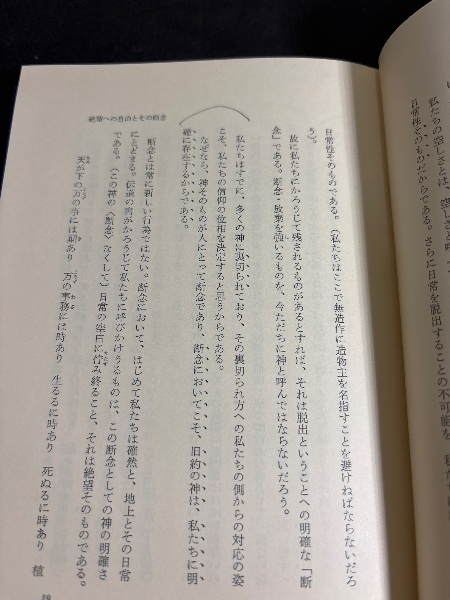 私たちの空しさとは、空しさと呼
性そのものだからである。さらに日常を脱出することの不可能を、
日常性そのものである。(私たちはここで無造作に造物主を名指すことを避けねばならないだろ
う)。
故に私たちにかろうじて残されるものがあるとすれば、それは脱出ということへの明確な「断
念」である。断念・放棄を強いるものを、今ただちに神と呼んではならないだろう。
私たちはすでに、多くの神に裏切られており、その裏切られ方への私たちの側からの対応の姿
こそ、私たちの信仰の位相を決定すると思うからである。
なぜなら、神そのものが人にとって断念であり、断念においてこそ、旧約の神は、私たちに明
確に存在するからである。
断念とは常に新しい行為ではない。断念において、はじめて私たちは確然と、地上とその日常
にとどまる。伝道の書がかろうじて私たちに呼びかけうるものは、この断念としての神の明確さ
である。〈この神の〈断念〉なくして〉日常の空白に佇み終ること、それは絶望そのものである。
天が下の万の事には期あり 万の事務には時あり 生るるに時あり 死ぬるに時あり 植
絶望への自由とその断念
19